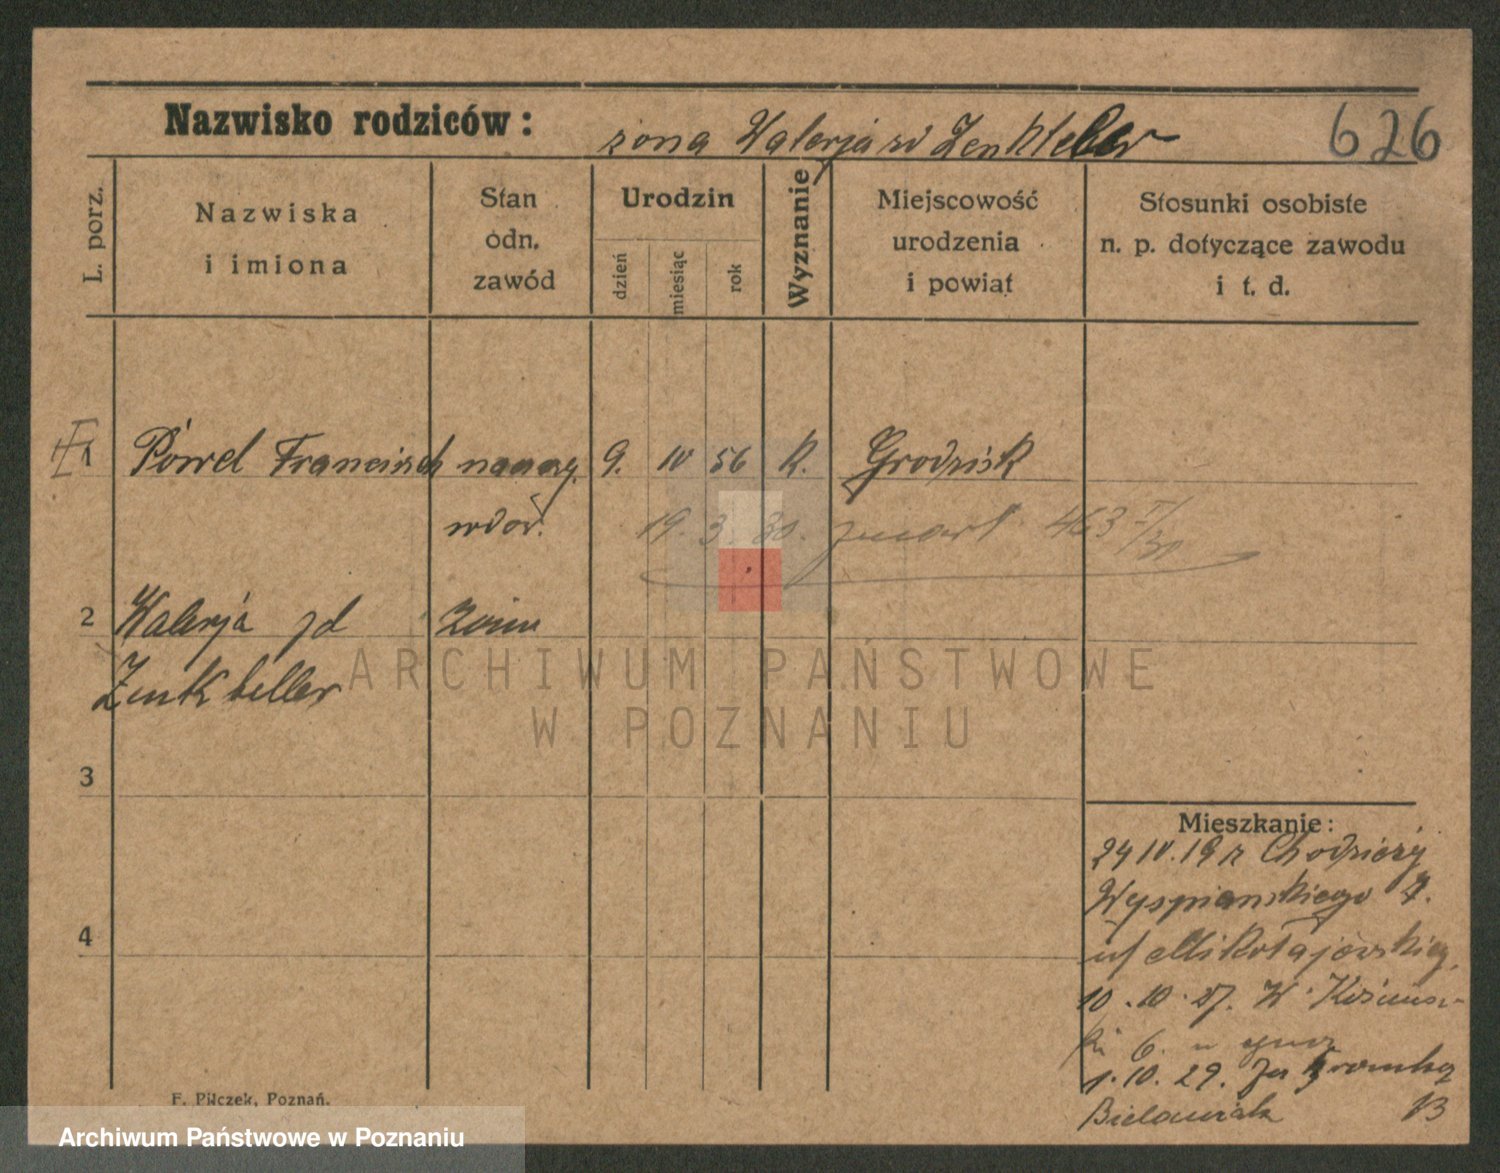 Nazwisko rodziców: żona Walerja zd Zenkteler
626
L. porz.
Nazwiska i imiona
Stan odn. zawód
Urodzin
dzień
miesiąc
rok
Wyznanie
Miejscowość urodzenia i powiat
Stosunki osobiste n. p. dotyczące zawodu i t. d.
1 Powel Francisch naucz. 9. IV 56 k. Grodzisk
wdow. 19. 3. 30. zmarł 463
2 Walerja zd
Zenkteller
ARCHIWUM PAŃSTWOWE
W POZNANIU
3
Mieszkanie:
24 IV. 19 z Chodzieży
Wyspiańskiego 7.
4
u Mikołajewskiej,
10. 10. 27. W. Kościusz-
ki 6. u
1. 10. 29.
Bielawiak
F. Pilczek, Poznań.
Archiwum Państwowe w Poznaniu